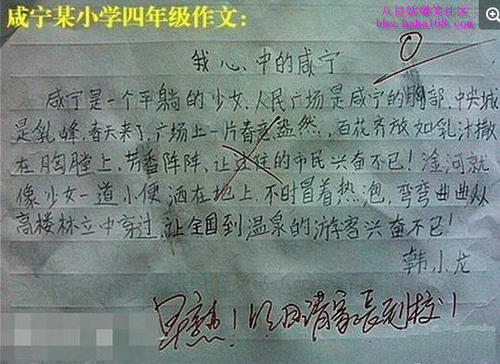 咸宁某小学四年级作文：
八目妖爆笑社区
bbs.haha168.com
我心中的咸宁
咸宁是一个平躺的少女，人民广场是咸宁的胸部，中央城
是乳峰，春天来了，广场上一片春意盎然，百花齐放如乳汁撒
在胸膛上，芳香阵阵、让过往的市民兴奋不已！淦河就
像少女一道小便洒在地上，不时冒着热泡，弯弯曲曲从
高楼林立中穿过，让全国到温泉的游客兴奋不已！
韩小龙
早熟！明日请家长到校！